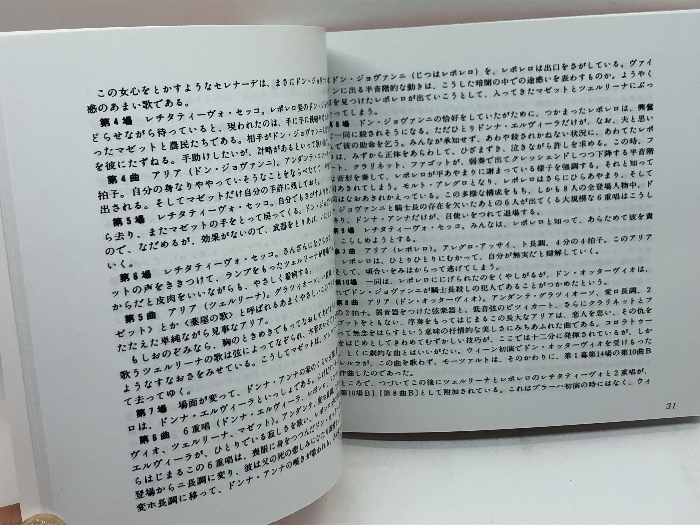 この女心をとかすようなセレナーデは、まさにドン・ジョヴァン
惑のあまい歌である。
第4場 レチタティーヴォ・セッコ。レポレロ姿のドン・ジョ
どらせながら待っていると、現われたのは、手に手に
ったマゼットと農民たちである。相手がドン・ジョヴァンニ
を彼にたずねる。手助けしたいが、計略があるといって
第4曲 アリア(ドン・ジョヴァンニ)。アンダンテ・
拍子。自分の身なりややっていそうなことをならべたて、
出される。そしてマゼットだけ自分の手許に残しておし
第5場 レチタティーヴォ・セッコ。自分でも
ら去り、またマゼットの手をとって戻ってくる。ドン・ジョ
ので、なだめるが、効果がないので、武器をとりあげ、
いく。
第6場 レチタティーヴォ・セッコ。さんざんになぐ
ットの声をききつけて、ランプをもったツェルリーナが
からだと皮肉をいいながらも、やさしく愛撫する。
第5曲 アリア(ツェルリーナ)。グラツィオーソ、
ゼット》とか《薬屋の歌》と呼ばれるあまくやさし
たたえた単純ながら見事なアリア。
もしおのぞみなら、胸のときめきでもってなおして
歌うツェルリーナの歌は弦によってなぞられ、木管
ようなすなおさをみせている。こうしてマゼットは、
て去ってゆく。
第7場 場面が変って、ドンナ・アンナの家の
ロは、ドンナ・エルヴィーラといっしょである。
第6曲 6重唱(ドンナ・エルヴィーラ、レポレロ、
ヴィオ、ツェルリーナ、マゼット)。アンダンテ、変ホ長調、
エルヴィーラが、ひとりでいる寂しさを歌い、レポレロ
らはじまるこの6重唱は、喪服に身をつつんだドン
登場からニ長調に変り、彼は父の死の悲しみに
変ホ長調に移って、ドンナ・アンナの嘆きが歌われる。
ドン・ジョヴァンニ(じつはレポレロ)を、レポレロは出口をさがしている。ヴァイ
ンに出る半音階的な動きは、こうした暗闇の中での途惑いを表わすものか。ようやく
を見つけたレポレロが出ていこうとして、入ってきたマゼットとツェルリーナにぶっ
てしまう。
8場 ドン・ジョヴァンニの恰好をしていたがために、つかまったレポレロは、興奮
一同に殺されそうになる。ただひとりドンナ・エルヴィーラだけが、なお、夫と思い
で彼の助命を乞う。みんなが承知せず、あわや殺されかねない状況に、あわてたレポ
は、みずから正体をあらわして、ひざまずき、泣きながら許しを求める。この時、フ
ト、クラリネット、ファゴットが、弱奏で出てクレッシェンドしつつ下降する半音階
音形を奏して、レポレロが平あやまりに謝まっている様子を強調する。それと知って
おどされてしまう。モルト・アレグロとなり、レポレロはさらにひらあやまり、そして
同はなおあきれかえっている。この多様な構成をもち、しかも8人の全登場人物中、ド
ジョヴァンニと騎士長の存在を欠いたあとの6人が出てくる大規模な6重唱はこうし
り、ドンナ・アンナだけが、召使いをつれて退場する。
9場 レチタティーヴォ・セッコ。みんなは、レポレロと知って、あらためて彼を責
こらしめようとする。
7曲 アリア(レポレロ)。アレグロ・アッサイ、ト長調、4分の4拍子。このアリア
レポレロは、ひとりひとりにむかって、自分が無実だと疏解していく。
して、頃合いをみはからって逃げてしまう。
第10場 一同は、レポレロににげられたのをくやしがるが、ドン・オッターヴィオは、
れでドン・ジョヴァンニが騎士長殺しの犯人であることがつかめたという。
8曲 アリア(ドン・オッターヴィオ)。アンダンテ・グラツィオーソ、変ロ長調、2
の2拍子。弱音器をつけた弦楽器と、低音弦のピツィカート、さらにクラリネットとフ
ゴットをともない、序奏をもってはじまるこの長大なアリアは、恋人を思い、その仇を
って無念をはらすという意味の抒情的な美しさにみちあふれた曲である。コロラトゥー
をはじめとしてきわめてむずかしい技巧が、ここでは十二分に発揮されているが、しか
、とくに劇的な曲とはいいがたい。ウィーン初演でドン・オッターヴィオを受けもった
レルラが、この曲を歌わず、モーツァルトは、そのかわりに、第1幕第14場の第10曲B
作曲したのであった。
ところで、つづいてこの後にツェルリーナとレポレロのレチタティーヴォと2重唱が、
第10場B〕〔第8曲B〕として附加されている。これはプラーハ初演の時にはなく、ウィ
31